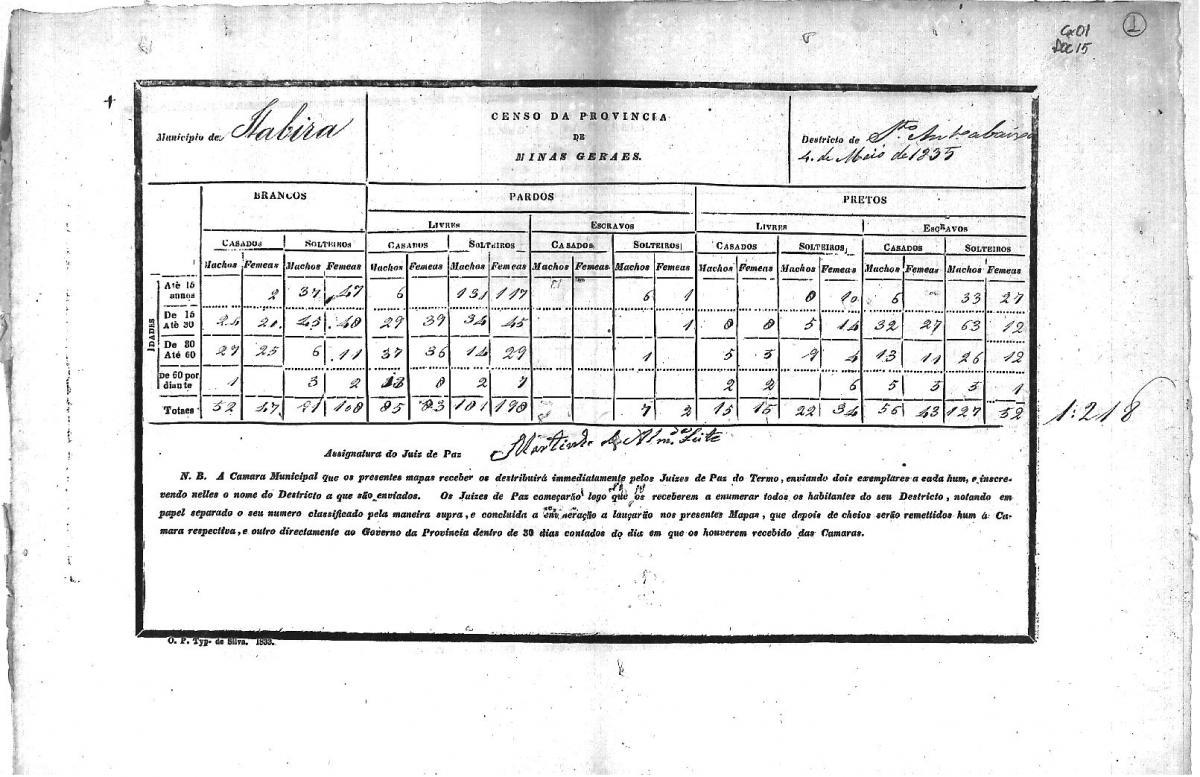 Cx01
Doc 15
1
Municipio de Itabira
CENSO DA PROVINCIA
DE
MINAS GERAES.
Destricto de Sto. Ant. abaixo
4. de Maio de 1835
BRANCOS PARDOS PRETOS
LIVRES ESCRAVOS LIVRES ESCRAVOS
CASADOS SOLTEIROS CASADOS SOLTEIROS CASADOS SOLTEIROS CASADOS SOLTEIROS CASADOS SOLTEIROS
Machos Femeas Machos Femeas Machos Femeas Machos Femeas Machos Femeas Machos Femeas Machos Femeas Machos Femeas Machos Femeas Machos Femeas
IDADES
Atè 15 annos 2 37 47 6 131 117 6 1 8 10 6 33 27
De 15 Atè 30 24 20 45 48 29 39 34 45 1 8 8 5 14 32 27 63 12
De 30 Até 60 27 25 6 11 37 36 14 29 1 5 5 9 4 13 11 26 12
De 60 por diante 1 3 2 13 8 2 7 2 2 6 5 5 5 1
Totaes 52 47 91 108 85 83 181 198 7 2 15 15 22 34 56 43 127 52
1:218
Assignatura do Juiz de Paz Martinho de Almda Leite
N. B. A Camara Municipal que os presentes mapas receber os destribuirá immediatamente pelos Juizes de Paz do Termo, enviando dois exemplares a cada hum, e inscre-
vendo nelles o nome do Destricto a que são enviados. Os Juizes de Paz começarão logo que os receberem a enumerar todos os habitantes do seu Destricto, notando em
papel separado o seu numero classificado pela maneira supra, e concluida a enumeração a lançarão nos presentes Mapas, que depois de cheios serão remettidos hum á Ca-
mara respectiva, e outro directamente ao Governo da Provincia dentro de 30 dias contados do dia em que os houverem recebido das Camaras.
O. P. Typ. de Silva. 1833.